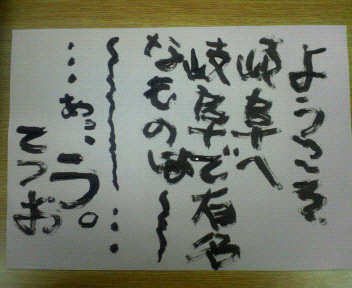 ようこそ
岐阜へ
岐阜で有名
なものは〜
〜〜〜…
…あっ…う。
てつお